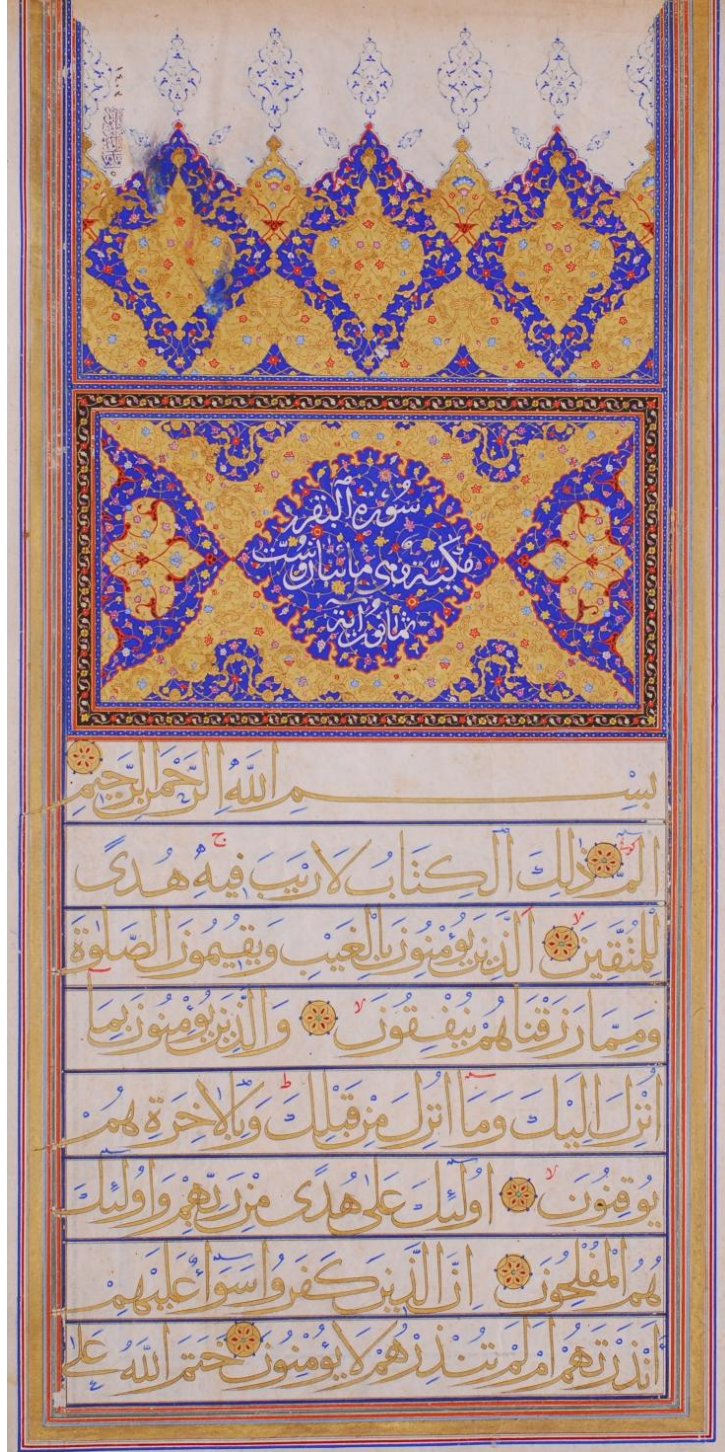 سُورَةُ الْبَقَرَة
مكيّة وهى مائتان وستّ
وثمانون آية
بِسْمِ اللَّهِ الرَّحْمَنِ الرَّحِيمِ
الم ذَلِكَ الْكِتَابُ لَا رَيْبَ فِيهِ هُدًى
لِلْمُتَّقِينَ الَّذِينَ يُؤْمِنُونَ بِالْغَيْبِ وَيُقِيمُونَ الصَّلٰوةَ
وَمِمَّا رَزَقْنَاهُمْ يُنْفِقُونَ وَالَّذِينَ يُؤْمِنُونَ بِمَا
اُنْزِلَ اِلَيْكَ وَمَا اُنْزِلَ مِنْ قَبْلِكَ وَبِالْاٰخِرَةِ هُمْ
يُوقِنُونَ اُولٰئِكَ عَلٰى هُدًى مِنْ رَبِّهِمْ وَاُولٰئِكَ
هُمُ الْمُفْلِحُونَ اِنَّ الَّذِينَ كَفَرُوا سَوَاءٌ عَلَيْهِمْ
ءَاَنْذَرْتَهُمْ اَمْ لَمْ تُنْذِرْهُمْ لَا يُؤْمِنُونَ خَتَمَ اللَّهُ عَلٰى